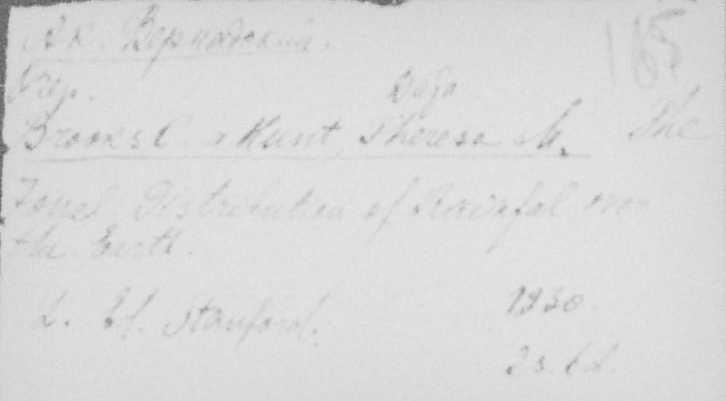 Ак. Вернадский.
165
Вода
Brooks C. & Hunt, Theresa M. The
Zonal Distribution of Rainfal over
the Earth.
L. Ed. Stanford.
1930.
2s. 6d.